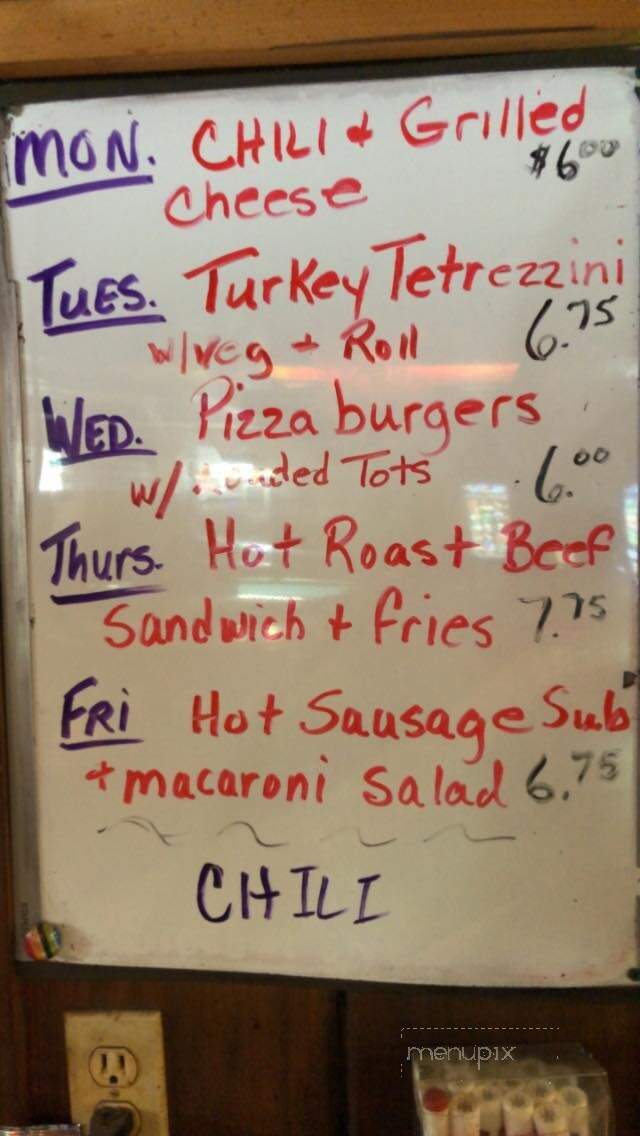 MON. CHILI & Grilled
Cheese $6.00
TUES. Turkey Tetrezzini
w/veg + Roll 6.75
WED. Pizza burgers
w/ Loaded Tots 6.00
Thurs. Hot Roast Beef
Sandwich + fries 7.75
FRI Hot Sausage Sub
+ macaroni Salad 6.75
CHILI
menupix